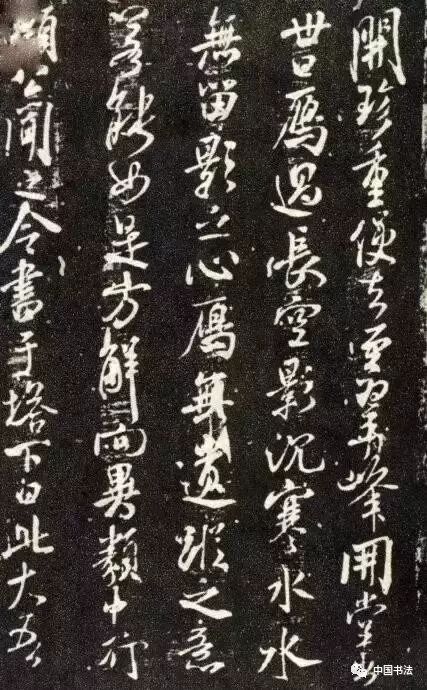 開珍重便峰開
鴈過長空影沉寒水水
無留影之心鴈無遺蹤之意
若能如是方解向異類中行
公聞之令書于塔下曰此大
中国书法